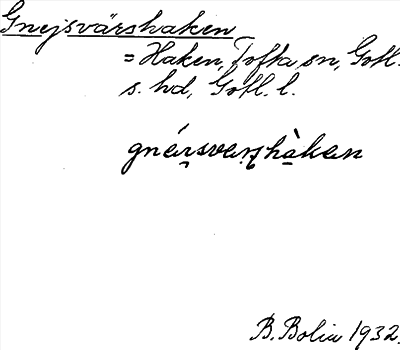 Gnejsvärshaken
= Haken, Tofta sn, Gotl.
s. hd, Gotl. l.
gnéi̯sværs̱hàkan
B. Bolin 1932.